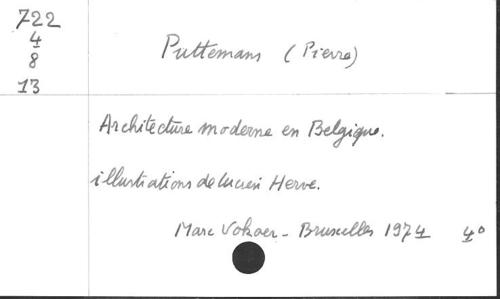 722
4
8
13
Puttemans (Pierre)
Architecture moderne en Belgique.
illustrations de Lucien Herve.
Marc Vokaer - Bruxelles 1974 4°